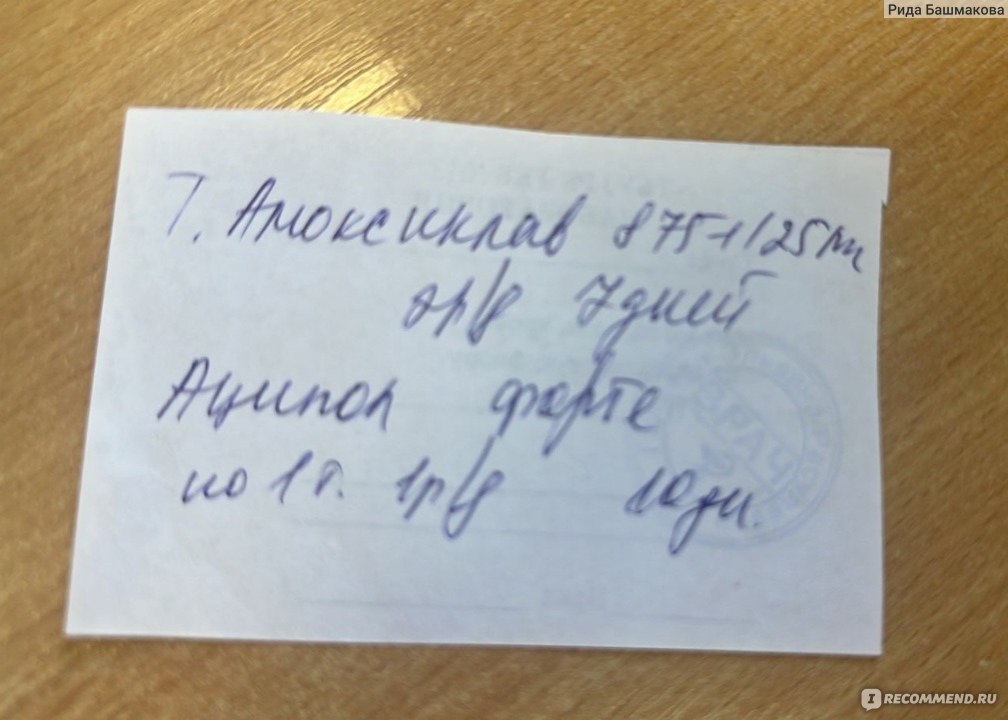 Рида Башмакова
Т. Амоксиклав 875+125мг
2р/д 7 дней
Аципол форте
по 1 т. 1р/д 10 дн.
ВРАЧ
IRECOMMEND.RU